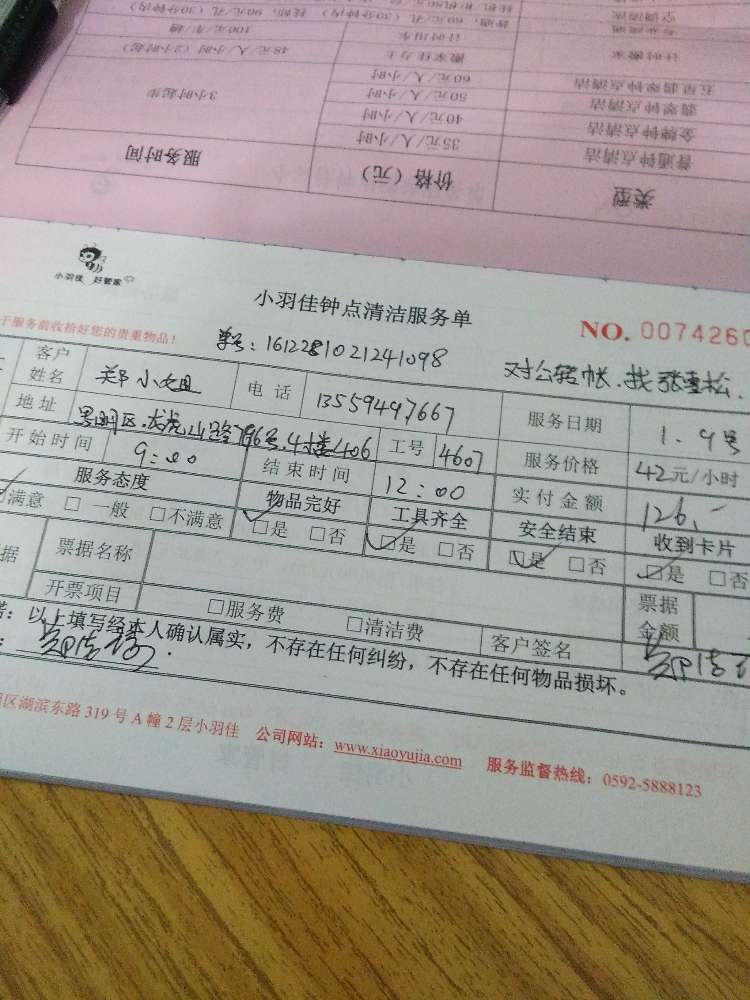 类型 价格（元） 服务时间
普通钟点清洁 35元/人/小时 3小时起步
金牌钟点清洁 40元/人/小时
翡翠钟点清洁 50元/人/小时
五星翡翠钟点清洁 60元/人/小时
计时搬家 搬家佳力士 48元/人/小时（2小时起）
计时用车 100元/车/趟
空调清洗
小羽佳 好管家
小羽佳钟点清洁服务单
NO. 0074260
于服务前收拾好您的贵重物品！
单号：1612281021241098
对公转帐.找张重松.
客户姓名 郑小姐 电话 13559497667 服务日期 1.9号
地址 思明区.龙虎山路796号.4楼406 工号 4607 服务价格 42元/小时
开始时间 9:00 结束时间 12:00 实付金额 126.-
服务态度 物品完好 工具齐全 安全结束 收到卡片
满意 □一般 □不满意 □是 □否 □是 □否 □是 □否 □是 □否
据 票据名称
开票项目 □服务费 □清洁费 票据金额
诺：以上填写经本人确认属实，不存在任何纠纷，不存在任何物品损坏。
客户签名
区湖滨东路319号A幢2层小羽佳 公司网站：www.xiaoyujia.com 服务监督热线：0592-5888123